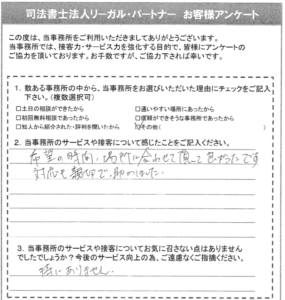 司法書士法人リーガル・パートナー お客様アンケート
この度は、当事務所をご利用いただきましてありがとうございます。
当事務所では、接客力・サービス力を強化する目的で、皆様にアンケートの
ご協力を頂いております。お手数ですが、ご協力下されば幸いです。
1. 数ある事務所の中から、当事務所をお選びいただいた理由にチェックをご記入
下さい。(複数選択可)
□土日の相談ができたから □通いやすい場所にあったから
□初回無料相談であったから □信頼ができそうな事務所であったから
□知人から紹介された・評判を聞いたから その他(
2. 当事務所のサービスや接客について感じたことをご記入ください。
希望の時間、場所に合わせて頂って
対応も親切で、助かりました。
3. 当事務所のサービスや接客についてお気に召さない点はありません
でしたでしょうか?今後のサービス向上の為、ご遠慮なくご指摘ください。
特にありません。